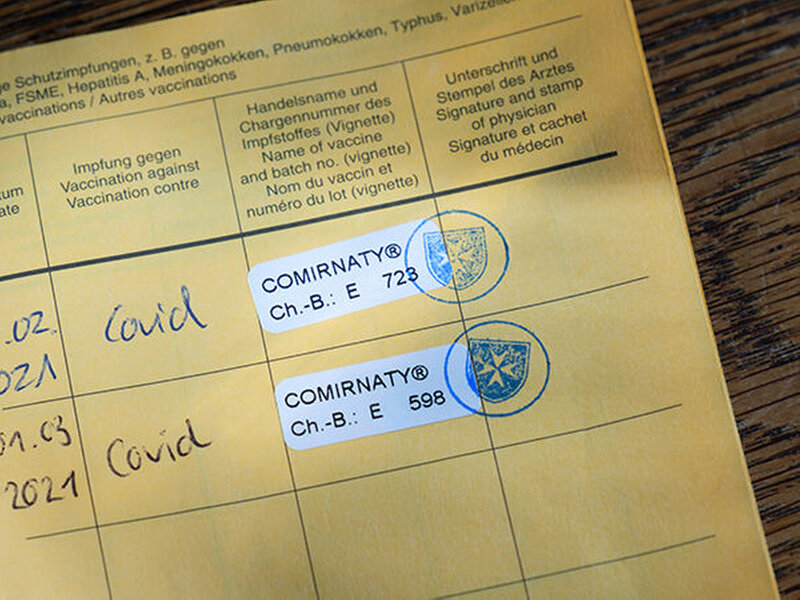 ge Schutzimpfungen, z. B. gegen
a, FSME, Hepatitis A, Meningokokken, Pneumokokken, Typhus, Varizellen
vaccinations / Autres vaccinations
tum
ate
Impfung gegen
Vaccination against
Vaccination contre
Handelsname und
Chargennummer des
Impfstoffes (Vignette)
Name of vaccine
and batch no. (vignette)
Nom du vaccin et
numéro du lot (vignette)
Unterschrift und
Stempel des Arztes
Signature and stamp
of physician
Signature et cachet
du médecin
.02.
021
Covid
COMIRNATY®
Ch.-B.: E 723
01.03
2021
Covid
COMIRNATY®
Ch.-B.: E 598